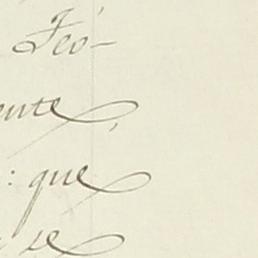 Feó-
ente,
: que
se